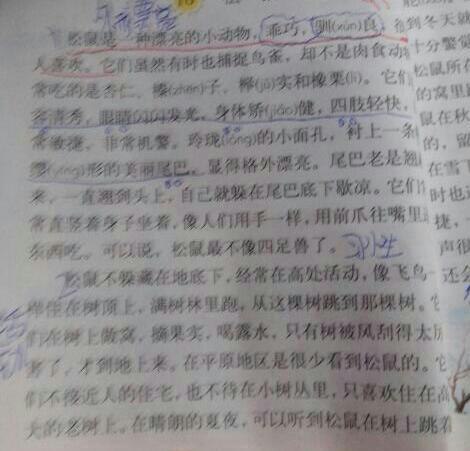 松鼠是一种漂亮的小动物，乖巧，驯(xùn)良，
人喜欢。它们虽然有时也捕捉鸟雀，却不是肉食动
常吃的是杏仁、榛(zhēn)子、榉(jǔ)实和橡栗(lì)。它们
容清秀，眼睛闪闪发光，身体矫(jiǎo)健，四肢轻快，
常敏捷，非常机警。玲珑(lóng)的小面孔，衬上一条
缨(yīng)形的美丽尾巴，显得格外漂亮。尾巴老是翘
来，一直翘到头上，自己就躲在尾巴底下歇凉。它们
常直竖着身子坐着，像人们用手一样，用前爪往嘴里
东西吃。可以说，松鼠最不像四足兽了。
松鼠不躲藏在地底下，经常在高处活动，像飞鸟一
样住在树顶上，满树林里跑，从这棵树跳到那棵树。它
们在树上做窝，摘果实，喝露水，只有树被风刮得太厉
害了，才到地上来。在平原地区是很少看到松鼠的。它
们不接近人的住宅，也不待在小树丛里，只喜欢住在高
大的老树上。在晴朗的夏夜，可以听到松鼠在树上跳着
到冬天就
十分警觉
松鼠所在
的窝里
鼠在秋
的，留
在雪下
时也
捷，
声很
还会